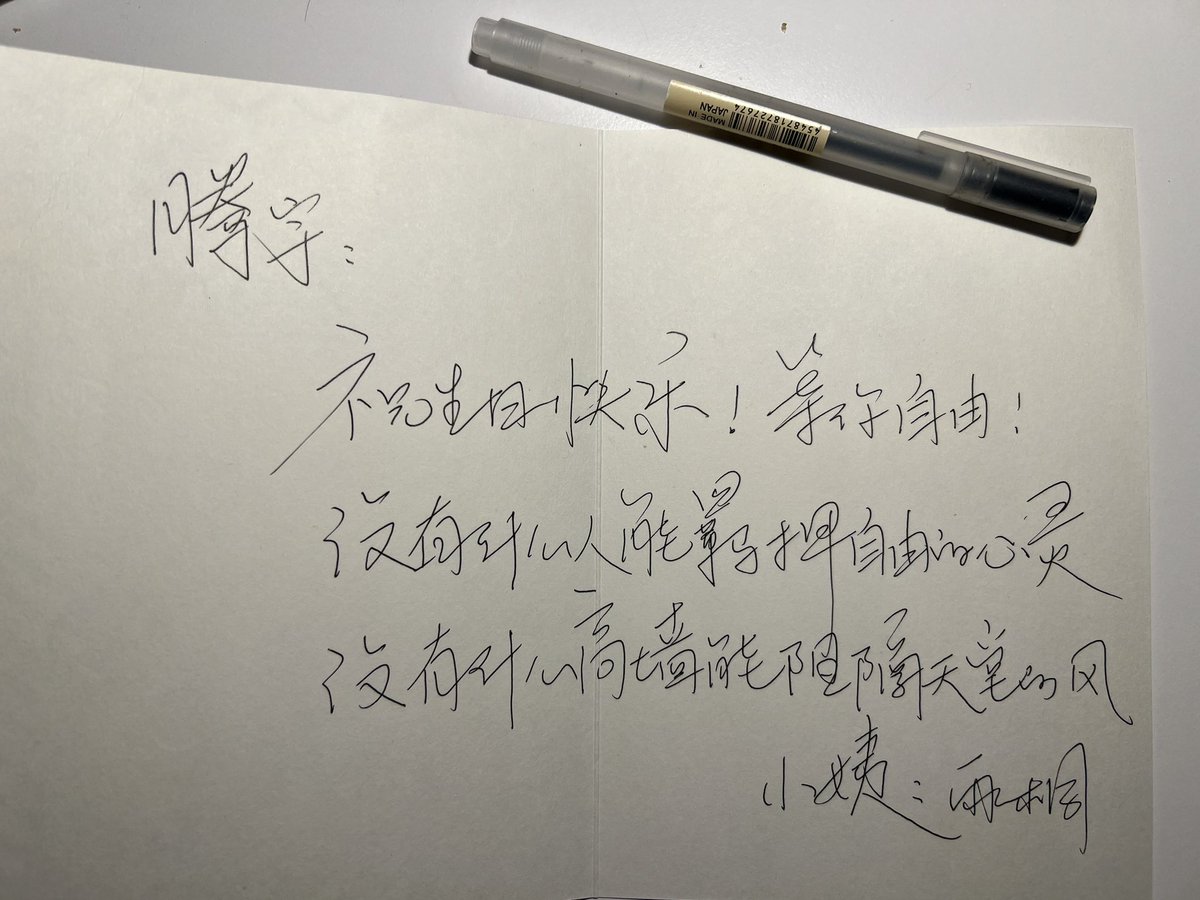 MADE IN
JAPAN
4548718727674
腾宇:
祝生日快乐!等你自由!
没有什么人能羁押自由的心灵
没有什么高墙能阻隔天堂的风
小姨:雨桐